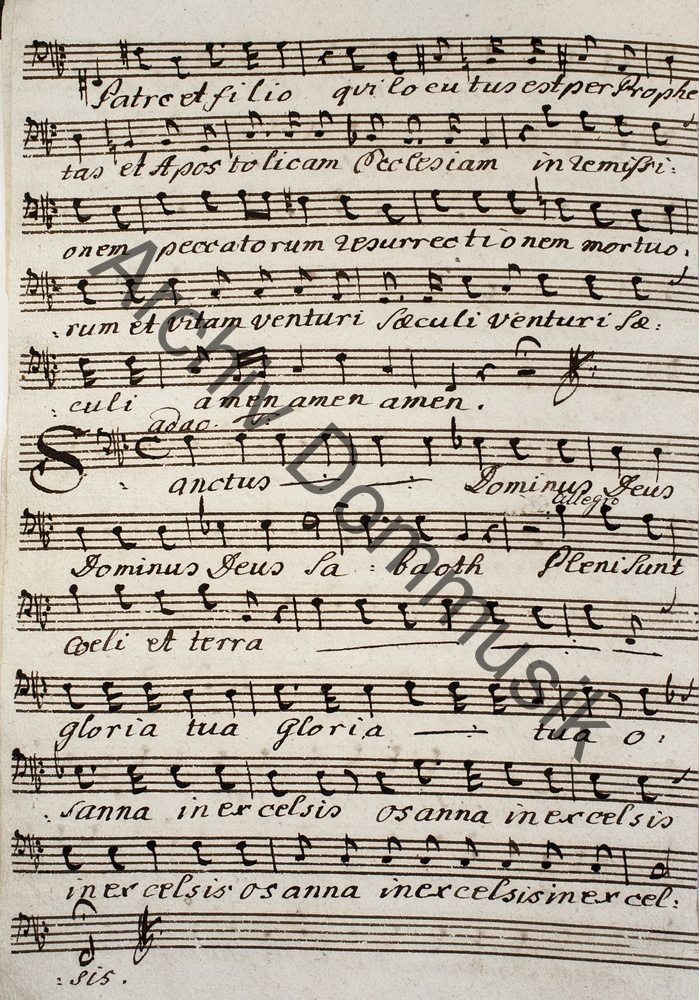 Patre et filio qui locutus est per Prophe
tas et Apostolicam Ecclesiam in remissi:
onem peccatorum resurrectionem mortuo:
:rum et vitam venturi sæculi venturi sæ:
:culi amen amen amen.
adag.
Sanctus Dominus Deus
allegro
Dominus Deus Sa:baoth Pleni sunt
coeli et terra
gloria tua gloria tua o:
:sanna in excelsis osanna in excelsis
in excelsis osanna in excelsis in excel:
:sis.
Archiv Dommusik